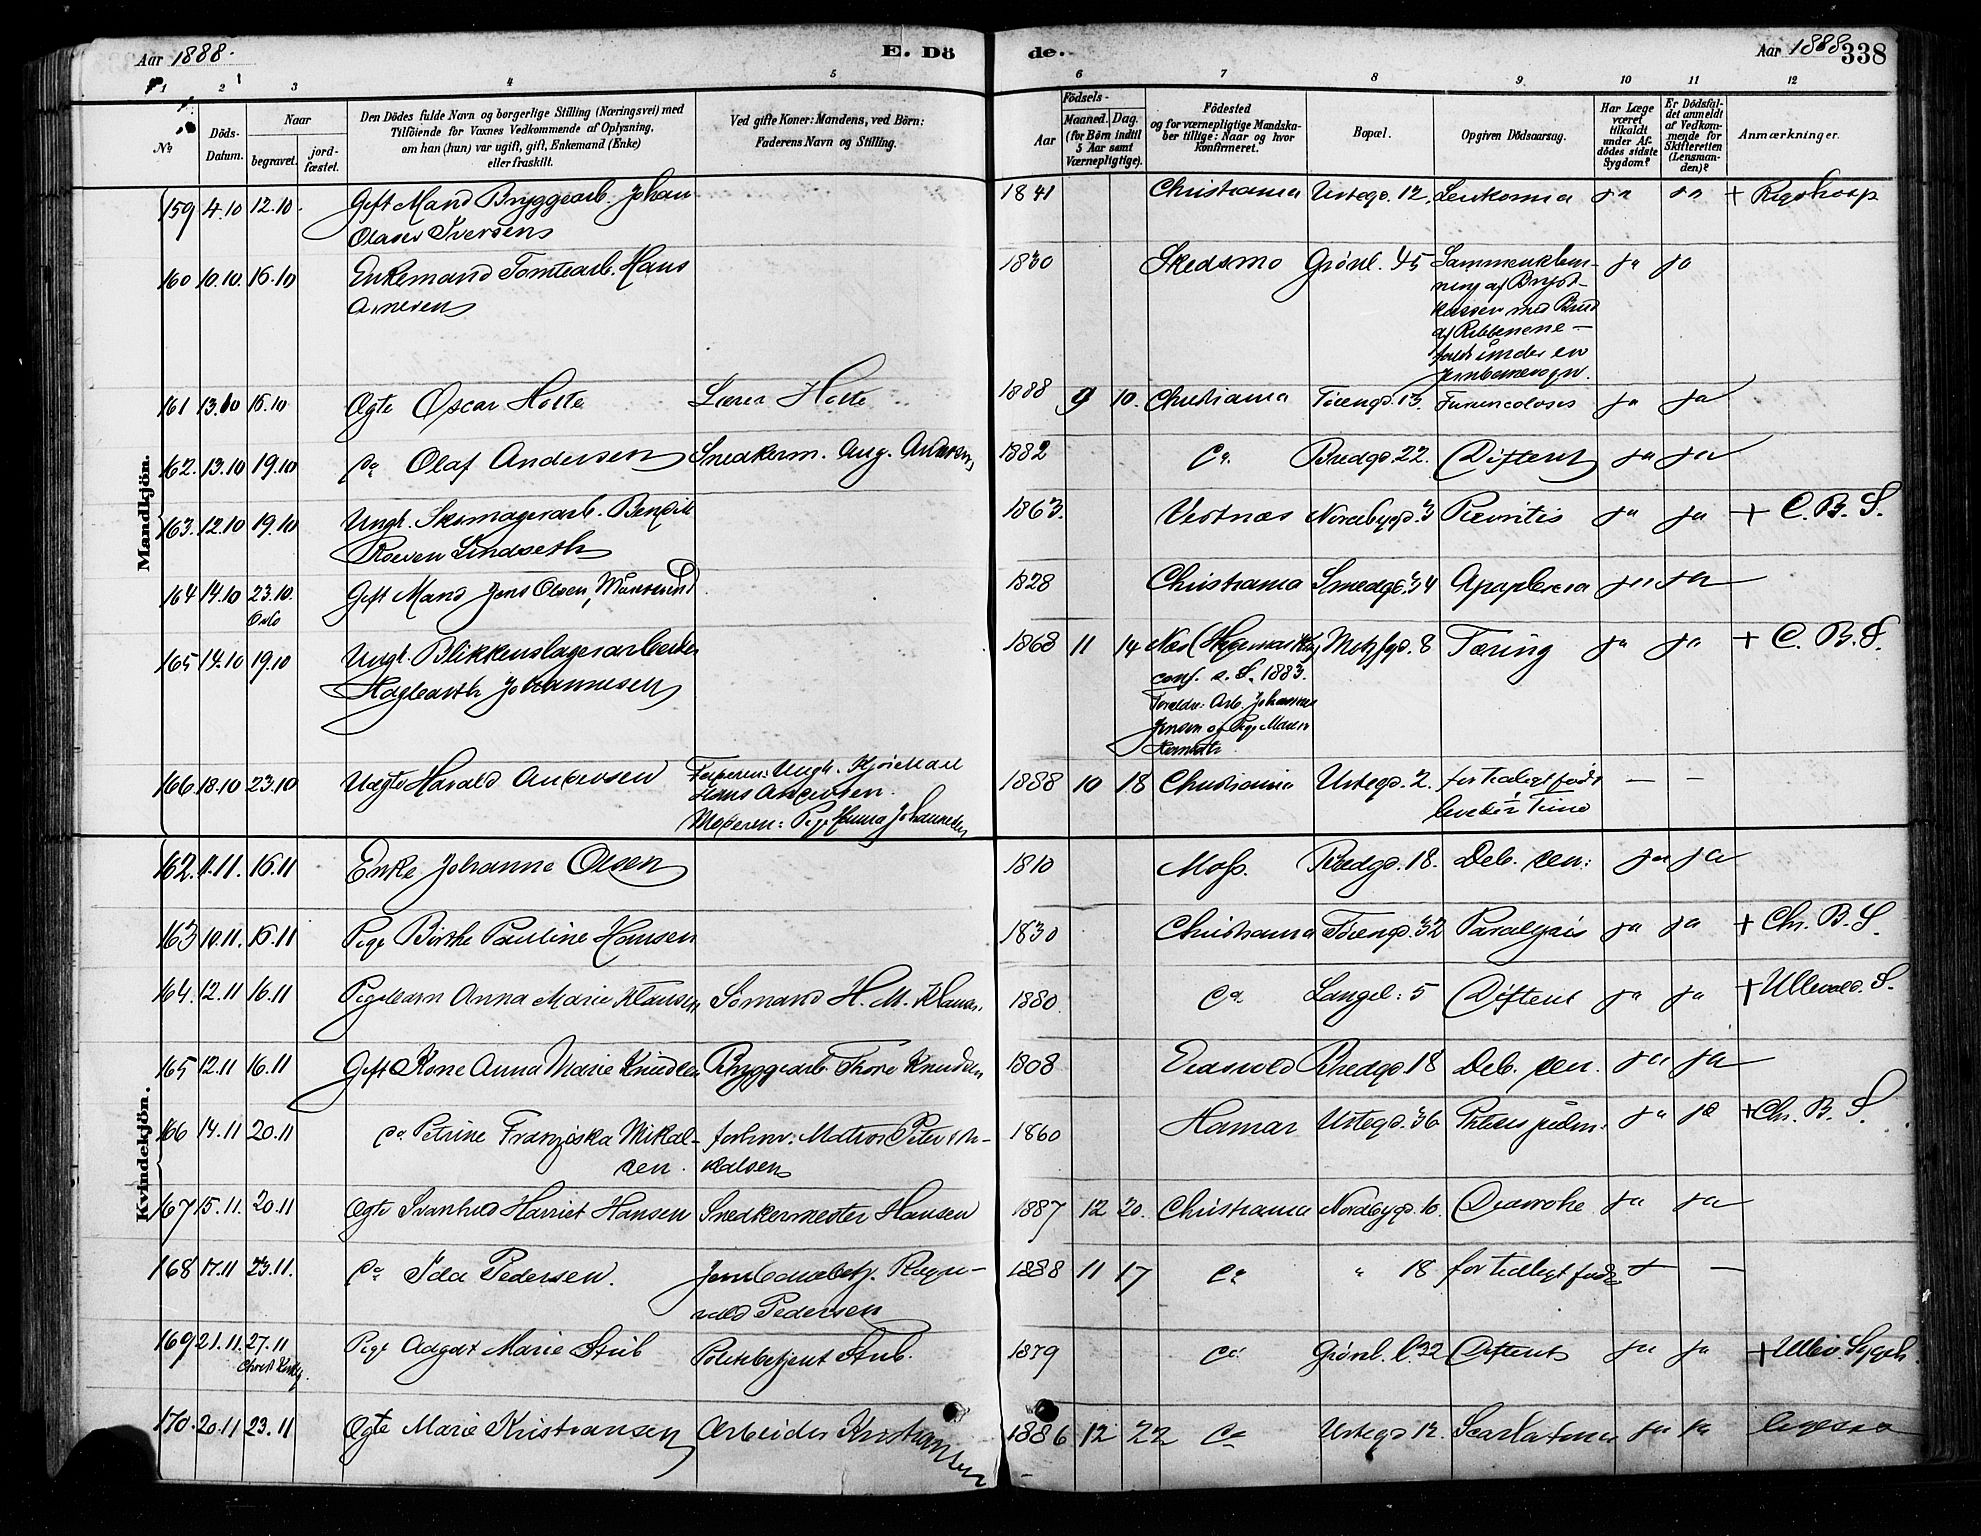 Aar 1888.
E. Döde.
Aar 1888
338
1 2 3 4 5 6 7 8 9 10 11 12
No
Döds-Datum.
Naar
begravet.
jord-fæstet.
Den Dödes fulde Navn og borgerlige Stilling (Næringsvei) med
Tilföiende for Voxnes Vedkommende af Oplysning,
om han (hun) var ugift, gift, Enkemand (Enke)
eller fraskilt.
Ved gifte Koner: Mandens, ved Börn:
Faderens Navn og Stilling.
Födsels-
Aar
Maaned. Dag.
(for Børn indtil
5 Aar samt
Værnepligtige).
Födested
og for værnepligtige Mandska-
ber tillige: Naar og hvor
konfirmeret.
Bopæl.
Opgiven Dödsaarsag.
Har Læge
været
tilkaldt
under Af-
dödes sidste
Sygdom?
Er Dödsfal-
det anmeldt
af Vedkom-
mende for
Skifteretten
(Lensman-
den)?
Anmærkninger.
Mandkjön.
159 4.10 12.10. Gift Mand Bryggearb. Johan 1841 Christiania Urtegd. 12. Leukomia ja ja + Rigshosp
Olaves Iversen
160 10.10. 16.10 Enkemand Tomtearb. Hans 1830 Skedsmo Grønl. 45 Sammenklem- ja ja
Arnesen ning af Bryst-
kassen med Brud
af Ribbenene –
faldt under en
Jernbanevogn.
161 13.10 16.10 Ægte Oscar Holte Lærer Holte 1888 9 10. Christiania Tøiengd. 13. Furunculosis ja ja
162. 13.10 19.10 do Olaf Andersen Snedkerm. Aug. Andersen 1882 do. Bredgd. 22. Difterit ja ja
163. 12.10 19.10 Ungk. Skomagerarb. 1863. Vestnæs Nordbygd. 3 Pleuritis ja ja + C. B. S.
Lindseth
164 14.10 23.10. Gift Mand Jens Olsen, 1828 Christiania Smedgd. 34 Apoplexia ja ja
Oslo
165 14.10 19.10 Ungk. Blikkenslagerarbeider 1868 11 14 Næs Motzfgd. 8 Tæring ja ja + C. B. S.
Johannesen conf. 1883.
Forældre: Arb. Johannes
Jensen og Pige Maren
166. 18.10 23.10 Uægte Harald Andersen Faderen: Ungk. 1888 10 18 Christiania Urtegd. 2. for tidligt født – –
Hans Andersen. levede 1 Time
Moderen: Pige Hanna Johannesen
Kvindekjön.
162. 11.11. 16.11 Enke Johanne Olsen 1810 Moss. Bredgd. 18. Deb. sen: ja ja
163 10.11. 15.11 Pige Birthe Pauline Hansen 1830 Christiania Tøiengd. 32 Paralysis ja ja + Chr. B. S.
164. 12.11 16.11 Pigebarn Anna Marie Klausen Sømand H. M. Klausen. 1880. do Langel: 5 Difterit ja ja + Ullevold. S.
165 12.11 16.11 Gift Kone Anna Marie Knudsen Bryggearb. Thore Knudsen 1808 Eidsvold Bredgd. 18 Deb. sen. ja ja
166 14.11 20.11 do Petrine Franziska Mikal- forhenv: Matros Peter Mi- 1860 Hamar Urtegd. 36 Phtisis pulm: ja ja + Chr. B. S.
sen. kalsen
167 15.11. 20.11 Ægte Svanhild Harriet Hansen Snedkermester Hansen 1887 12 20. Christiania Nordbygd. 10. Diarrohe ja ja
168 17.11 23.11. do Ida Pedersen. Jernbanebetj. Ragn- 1888 11 17 do " 18 for tidligt født –
vald Pedersen
169 21.11. 27.11 Pige Marie Stub Politibetjent Stub. 1879 do. Grønl. 32 Difterit ja ja + Ullev. Sygeh.
Christ Kirkeg.
170. 20.11 23.11 Ægte Marie Kristiansen Arbeider Kristiansen 1886 12 22 do Urtegd 12. Scarlatina ja ja